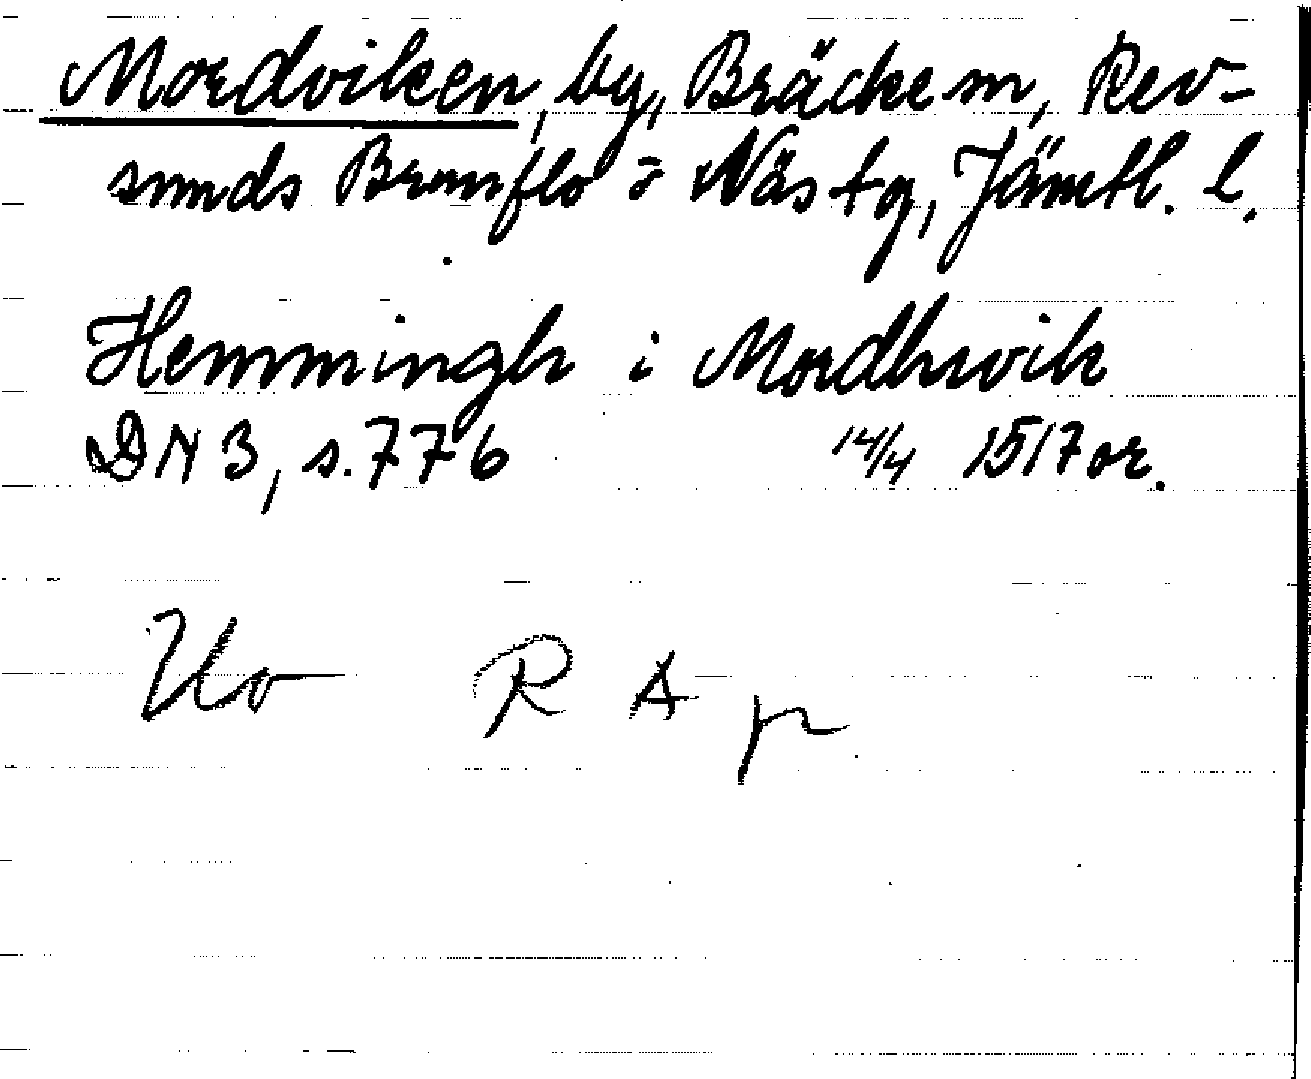 Mordviken, by, Bräcke sn, Rev-
sunds Brunflo o Näs tg, Jämtl. l.
Hemmingh i Mordhwik
DN 3, s. 776 14/4 1517 or.
R A p